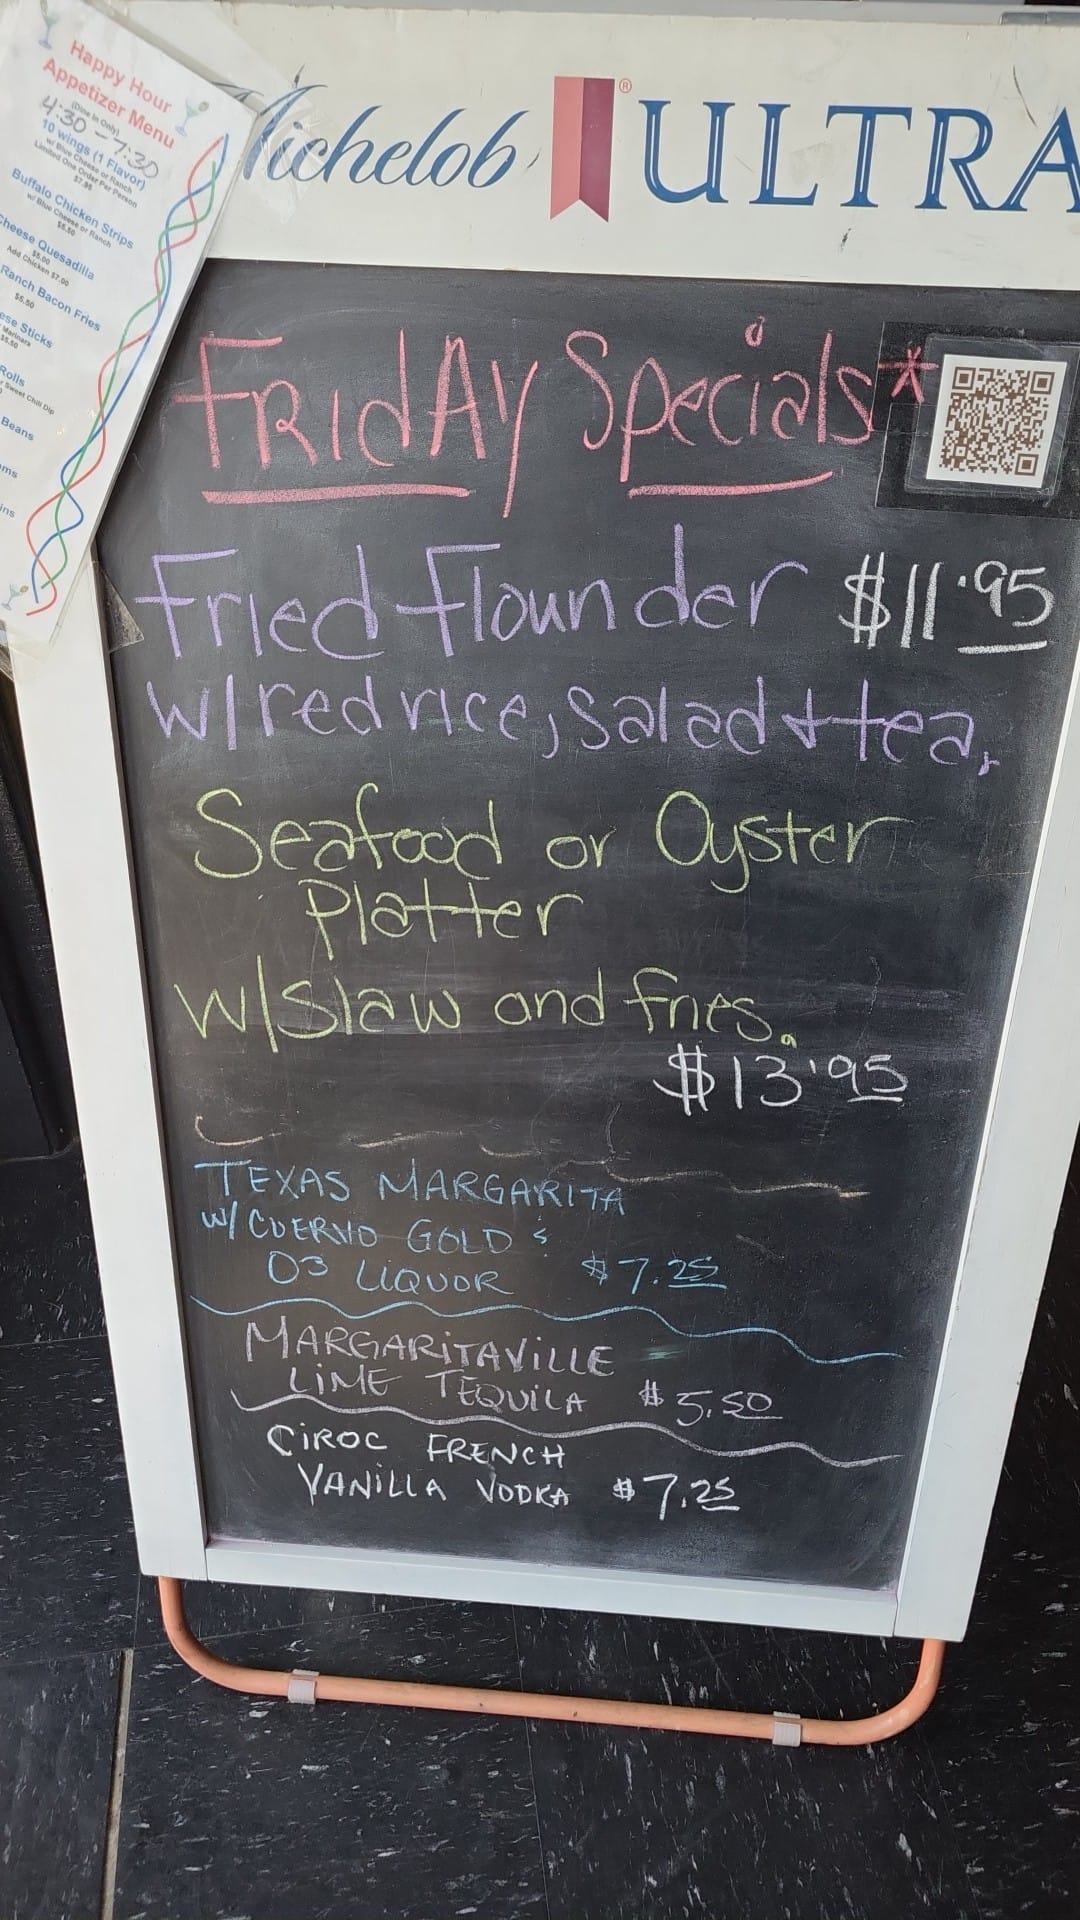 Happy Hour
Appetizer Menu
(Dine In Only)
4:30 - 7:30
10 wings (1 Flavor)
w/ Blue Cheese or Ranch
Limited One Order Per Person
$7.95
Buffalo Chicken Strips
w/ Blue Cheese or Ranch
$5.50
Cheese Quesadilla
$5.00
Add Chicken $7.00
Ranch Bacon Fries
$5.50
Sticks
Marinara
$5.50
Rolls
Sweet Chili Dip
Beans
Michelob ULTRA
Friday Specials*
Fried Flounder $11.95
w/red rice, salad & tea,
Seafood or Oyster
Platter
w/slaw and fries.
$13.95
TEXAS MARGARITA
w/ CUERVO GOLD &
O3 LIQUOR $7.25
MARGARITAVILLE
LIME TEQUILA $5.50
CIROC FRENCH
VANILLA VODKA $7.25